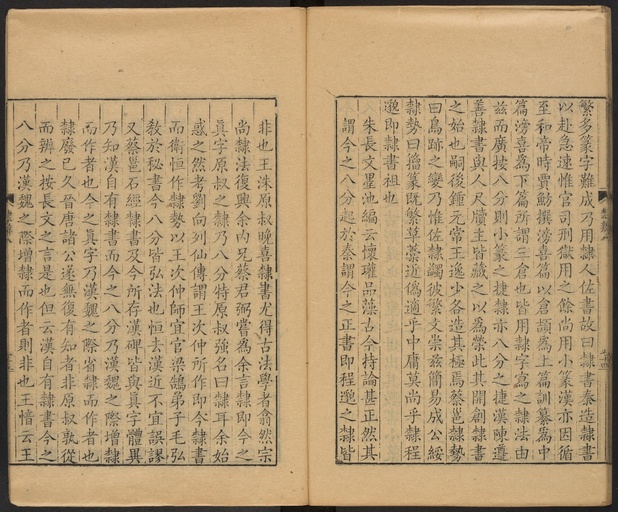 繁多篆字難成乃用隸人佐書故曰隸書秦造隸書
以赴急速惟官司刑獄用之餘尚用小篆漢亦因循
至和帝時賈魴撰滂喜篇以倉頡為上篇訓纂為中
篇滂喜為下篇所謂三倉也皆用隸字為之隸法由
茲而廣按八分則小篆之捷隸亦八分之捷漢陳遵
善隸書與人尺牘主皆藏之以為榮此其開創隸書
之始也嗣後鍾元常王逸少各造其極焉蔡邕隸勢
曰鳥跡之變乃惟佐隸蠲彼繁文崇茲簡易成公綏
隸勢曰蟲篆既繁草藁近偽適乎中庸莫尚乎隸程
邈即隸書祖也
朱長文墨池編云懷瓘品藻古今持論甚正然其
謂今之八分起於秦謂今之正書即程邈之隸皆
非也王洙原叔晚喜隸書尤得古法學者翕然宗
尚隸法復興余內兄蔡君弼嘗為余言隸即今之
真字原叔之隸乃八分特原叔強名曰隸耳余始
惑之然考劉向列仙傳謂王次仲所作即今隸書
而衛恒作隸勢以王次仲師宜官梁鵠弟子毛弘
教於秘書今八分皆弘法也恒去漢近不宜誤謬
又蔡邕石經隸書及今所存漢碑皆與真字體異
乃知漢自有隸書而今之八分乃漢魏之際增隸
而作者也今之真字乃漢魏之際省隸而作者也
隸廢已久晉唐諸公遂無復有知者非原叔孰從
而辨之按長文之言是也但云漢自有隸書今之
八分乃漢魏之際增隸而作者則非也王愔云王